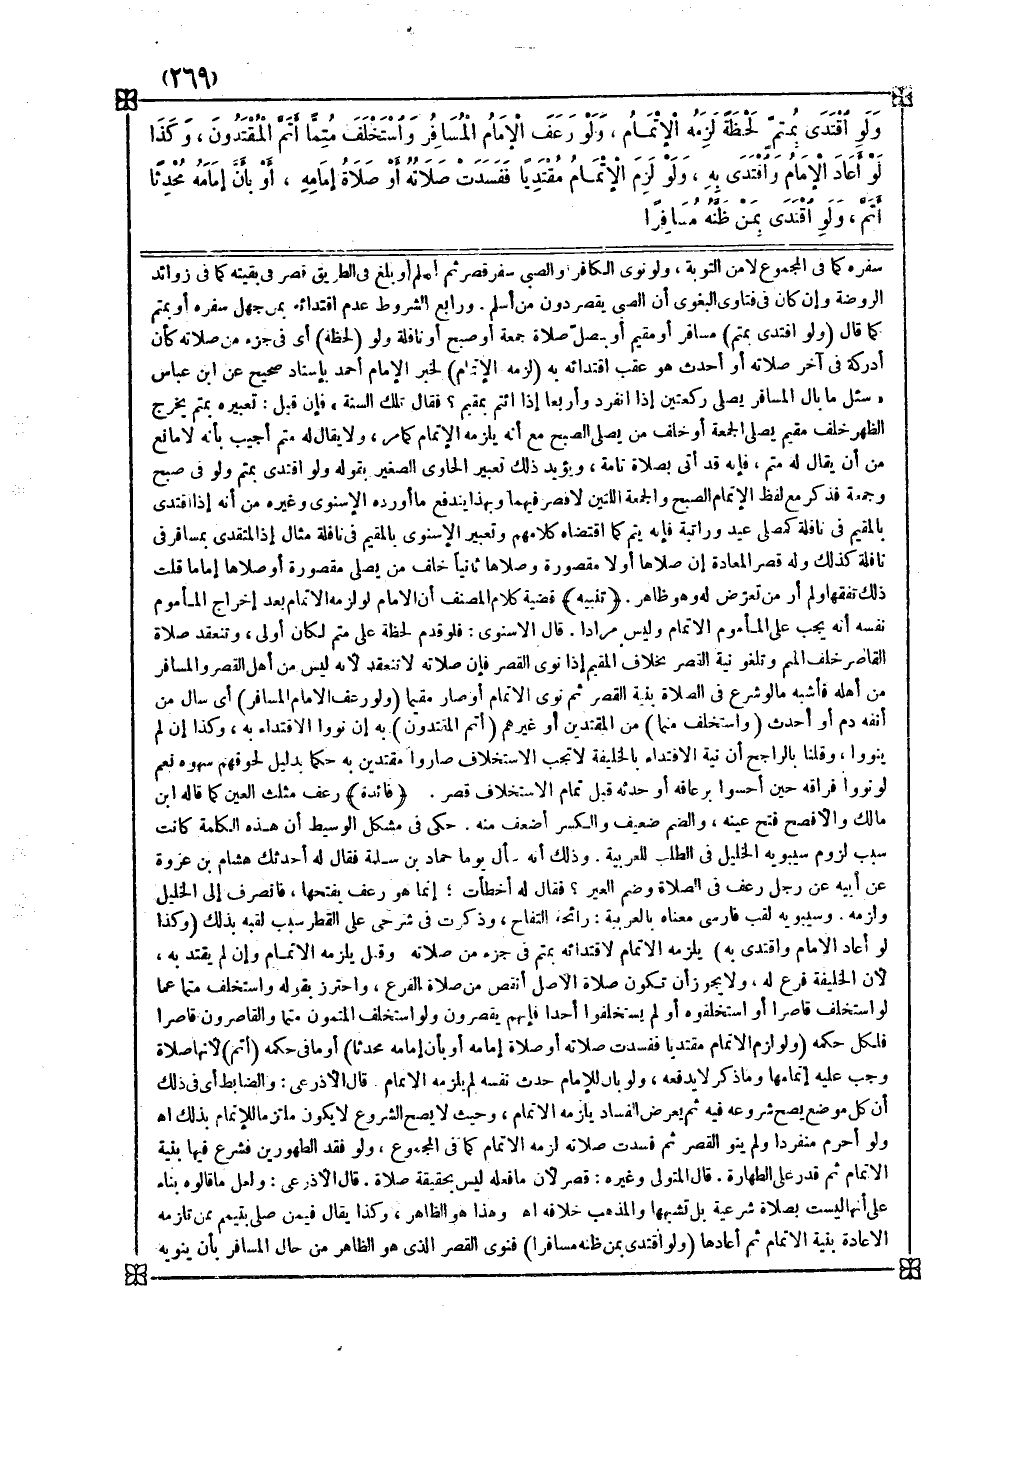 (٢٦٩)
وَلَوِ اقْتَدَى بِمُتِمٍّ لَحْظَةً لَزِمَهُ الْإِتْمَامُ ، وَلَوْ رَعَفَ الْإِمَامُ الْمُسَافِرُ وَاسْتَخْلَفَ مُتِمًّا أَتَمَّ الْمُقْتَدُونَ ، وَكَذَا
لَوْ أَعَادَ الْإِمَامُ وَاقْتَدَى بِهِ ، وَلَوْ لَزِمَ الْإِتْمَامُ مُقْتَدِيًا فَفَسَدَتْ صَلَاتُهُ أَوْ صَلَاةُ إِمَامِهِ ، أَوْ بَانَ إِمَامُهُ مُحْدِثًا
أَتَمَّ ، وَلَوِ اقْتَدَى بِمَنْ ظَنَّهُ مُسَافِرًا
سفره كما فى المجموع لامن التوبة ، ولو نوى الكافر والصبي سفر قصر ثم أسلم أو بلغ فى الطريق قصر فى بقيته كما فى زوائد
الروضة وإن كان فى فتاوى البغوى أن الصبي يقصر دون من أسلم . ورابع الشروط عدم اقتدائه بمن جهل سفره أو بمتم
كما قال (ولو اقتدى بمتم) مسافر أو مقيم أو بمصل صلاة جمعة أو صبح أو نافلة ولو (لحظة) أى فى جزء من صلاته كأن
أدركه فى آخر صلاته أو أحدث هو عقب اقتدائه به (لزمه الإتمام) لخبر الإمام أحمد بإسناد صحيح عن ابن عباس
« سئل ما بال المسافر يصلى ركعتين إذا انفرد وأربعا إذا ائتم بمقيم ؟ فقال تلك السنة » فإن قيل : تعبيره بمتم يخرج
الظهر خلف مقيم يصلى الجمعة أو خلف من يصلى الصبح مع أنه يلزمه الإتمام كما مر ، ولا يقال له متم أجيب بأنه لا مانع
من أن يقال له متم ، فإنه قد أتى بصلاة تامة ، ويؤيد ذلك تعبير الحاوى الصغير بقوله ولو اقتدى بمتم ولو فى صبح
وجمعة فذكر مع لفظ الإتمام الصبح والجمعة اللتين لا قصر فيهما وبهذا يندفع ما أورده الإسنوى وغيره من أنه إذا اقتدى
بالمقيم فى نافلة كمصلى عيد وراتبة فإنه يتم كما اقتضاه كلامهم وتعبير الإسنوى بالمقيم فى نافلة مثال إذ المقتدى بمسافر فى
نافلة كذلك وله قصر المعادة إن صلاها أولا مقصورة وصلاها ثانياً خلف من يصلى مقصورة أو صلاها إماما قلت
ذلك تفقها ولم أر من تعرّض له وهو ظاهر . ﴿ تنبيه ﴾ قضية كلام المصنف أن الامام لو لزمه الاتمام بعد إخراج المأموم
نفسه أنه يجب على المأموم الاتمام وليس مرادا . قال الاسنوى : فلو قدم لحظة على متم لكان أولى ، وتنعقد صلاة
القاصر خلف المتم وتلغو نية القصر بخلاف المقيم إذا نوى القصر فإن صلاته لا تنعقد لأنه ليس من أهل القصر والمسافر
من أهله فأشبه مالو شرع فى الصلاة بنية القصر ثم نوى الاتمام أو صار مقيما (ولو رعف الامام المسافر) أى سال من
أنفه دم أو أحدث (واستخلف متما) من المقتدين أو غيرهم (أتم المقتدون) به إن نووا الاقتداء به ، وكذا إن لم
ينووا ، وقلنا بالراجح أن نية الاقتداء بالخليفة لا تجب الاستخلاف صاروا مقتدين به حكما بدليل لحوقهم سهوه نعم
لو نووا فراقه حين أحسوا برعافه أو حدثه قبل تمام الاستخلاف قصر . ﴿ فائدة ﴾ رعف مثلث العين كما قاله ابن
مالك والأفصح فتح عينه ، والضم ضعيف والكسر أضعف منه . حكى فى مشكل الوسيط أن هذه الكلمة كانت
سبب لزوم سيبويه الخليل فى الطلب للعربية . وذلك أنه سأل يوما حماد بن سلمة فقال له أحدثك هشام بن عروة
عن أبيه عن رجل رعف فى الصلاة وضم العين ؟ فقال له أخطأت ؛ إنما هو رعف بفتحها ، فانصرف إلى الخليل
ولزمه . وسيبويه لقب فارسى معناه بالعربية : رائحة التفاح ، وذكرت فى شرحى على القطر سبب لقبه بذلك (وكذا
لو أعاد الامام واقتدى به) يلزمه الاتمام لاقتدائه بمتم فى جزء من صلاته وقيل يلزمه الاتمام وإن لم يقتد به ،
لأن الخليفة فرع له ، ولا يجوز أن تكون صلاة الأصل أنقص من صلاة الفرع ، واحترز بقوله واستخلف متما عما
لو استخلف قاصرا أو استخلفوه أو لم يستخلفوا أحدا فإنهم يقصرون ولو استخلف المتمون متما والقاصرون قاصرا
فلكل حكمه (ولو لزم الاتمام مقتديا ففسدت صلاته أو صلاة إمامه أو بان إمامه محدثا) أو ما فى حكمه (أتم) لأنها صلاة
وجب عليه إتمامها وما ذكر لا يدفعه ، ولو بان للإمام حدث نفسه لم يلزمه الاتمام . قال الأذرعى : والضابط أى فى ذلك
أن كل موضع يصح شروعه فيه ثم يعرض الفساد يلزمه الاتمام ، وحيث لا يصح الشروع لا يكون ملتزما للإتمام بذلك اهـ
ولو أحرم منفردا ولم ينو القصر ثم فسدت صلاته لزمه الاتمام كما فى المجموع ، ولو فقد الطهورين فشرع فيها بنية
الاتمام ثم قدر على الطهارة . قال المتولى وغيره : قصر لأن ما فعله ليس بحقيقة صلاة . قال الأذرعى : ولعل ما قالوه بناء
على أنها ليست بصلاة شرعية بل تشبهها والمذهب خلافه اهـ وهذا هو الظاهر ، وكذا يقال فيمن صلى بتيمم ممن تلزمه
الاعادة بنية الاتمام ثم أعادها (ولو اقتدى بمن ظنه مسافرا) فنوى القصر الذى هو الظاهر من حال المسافر بأن ينويه